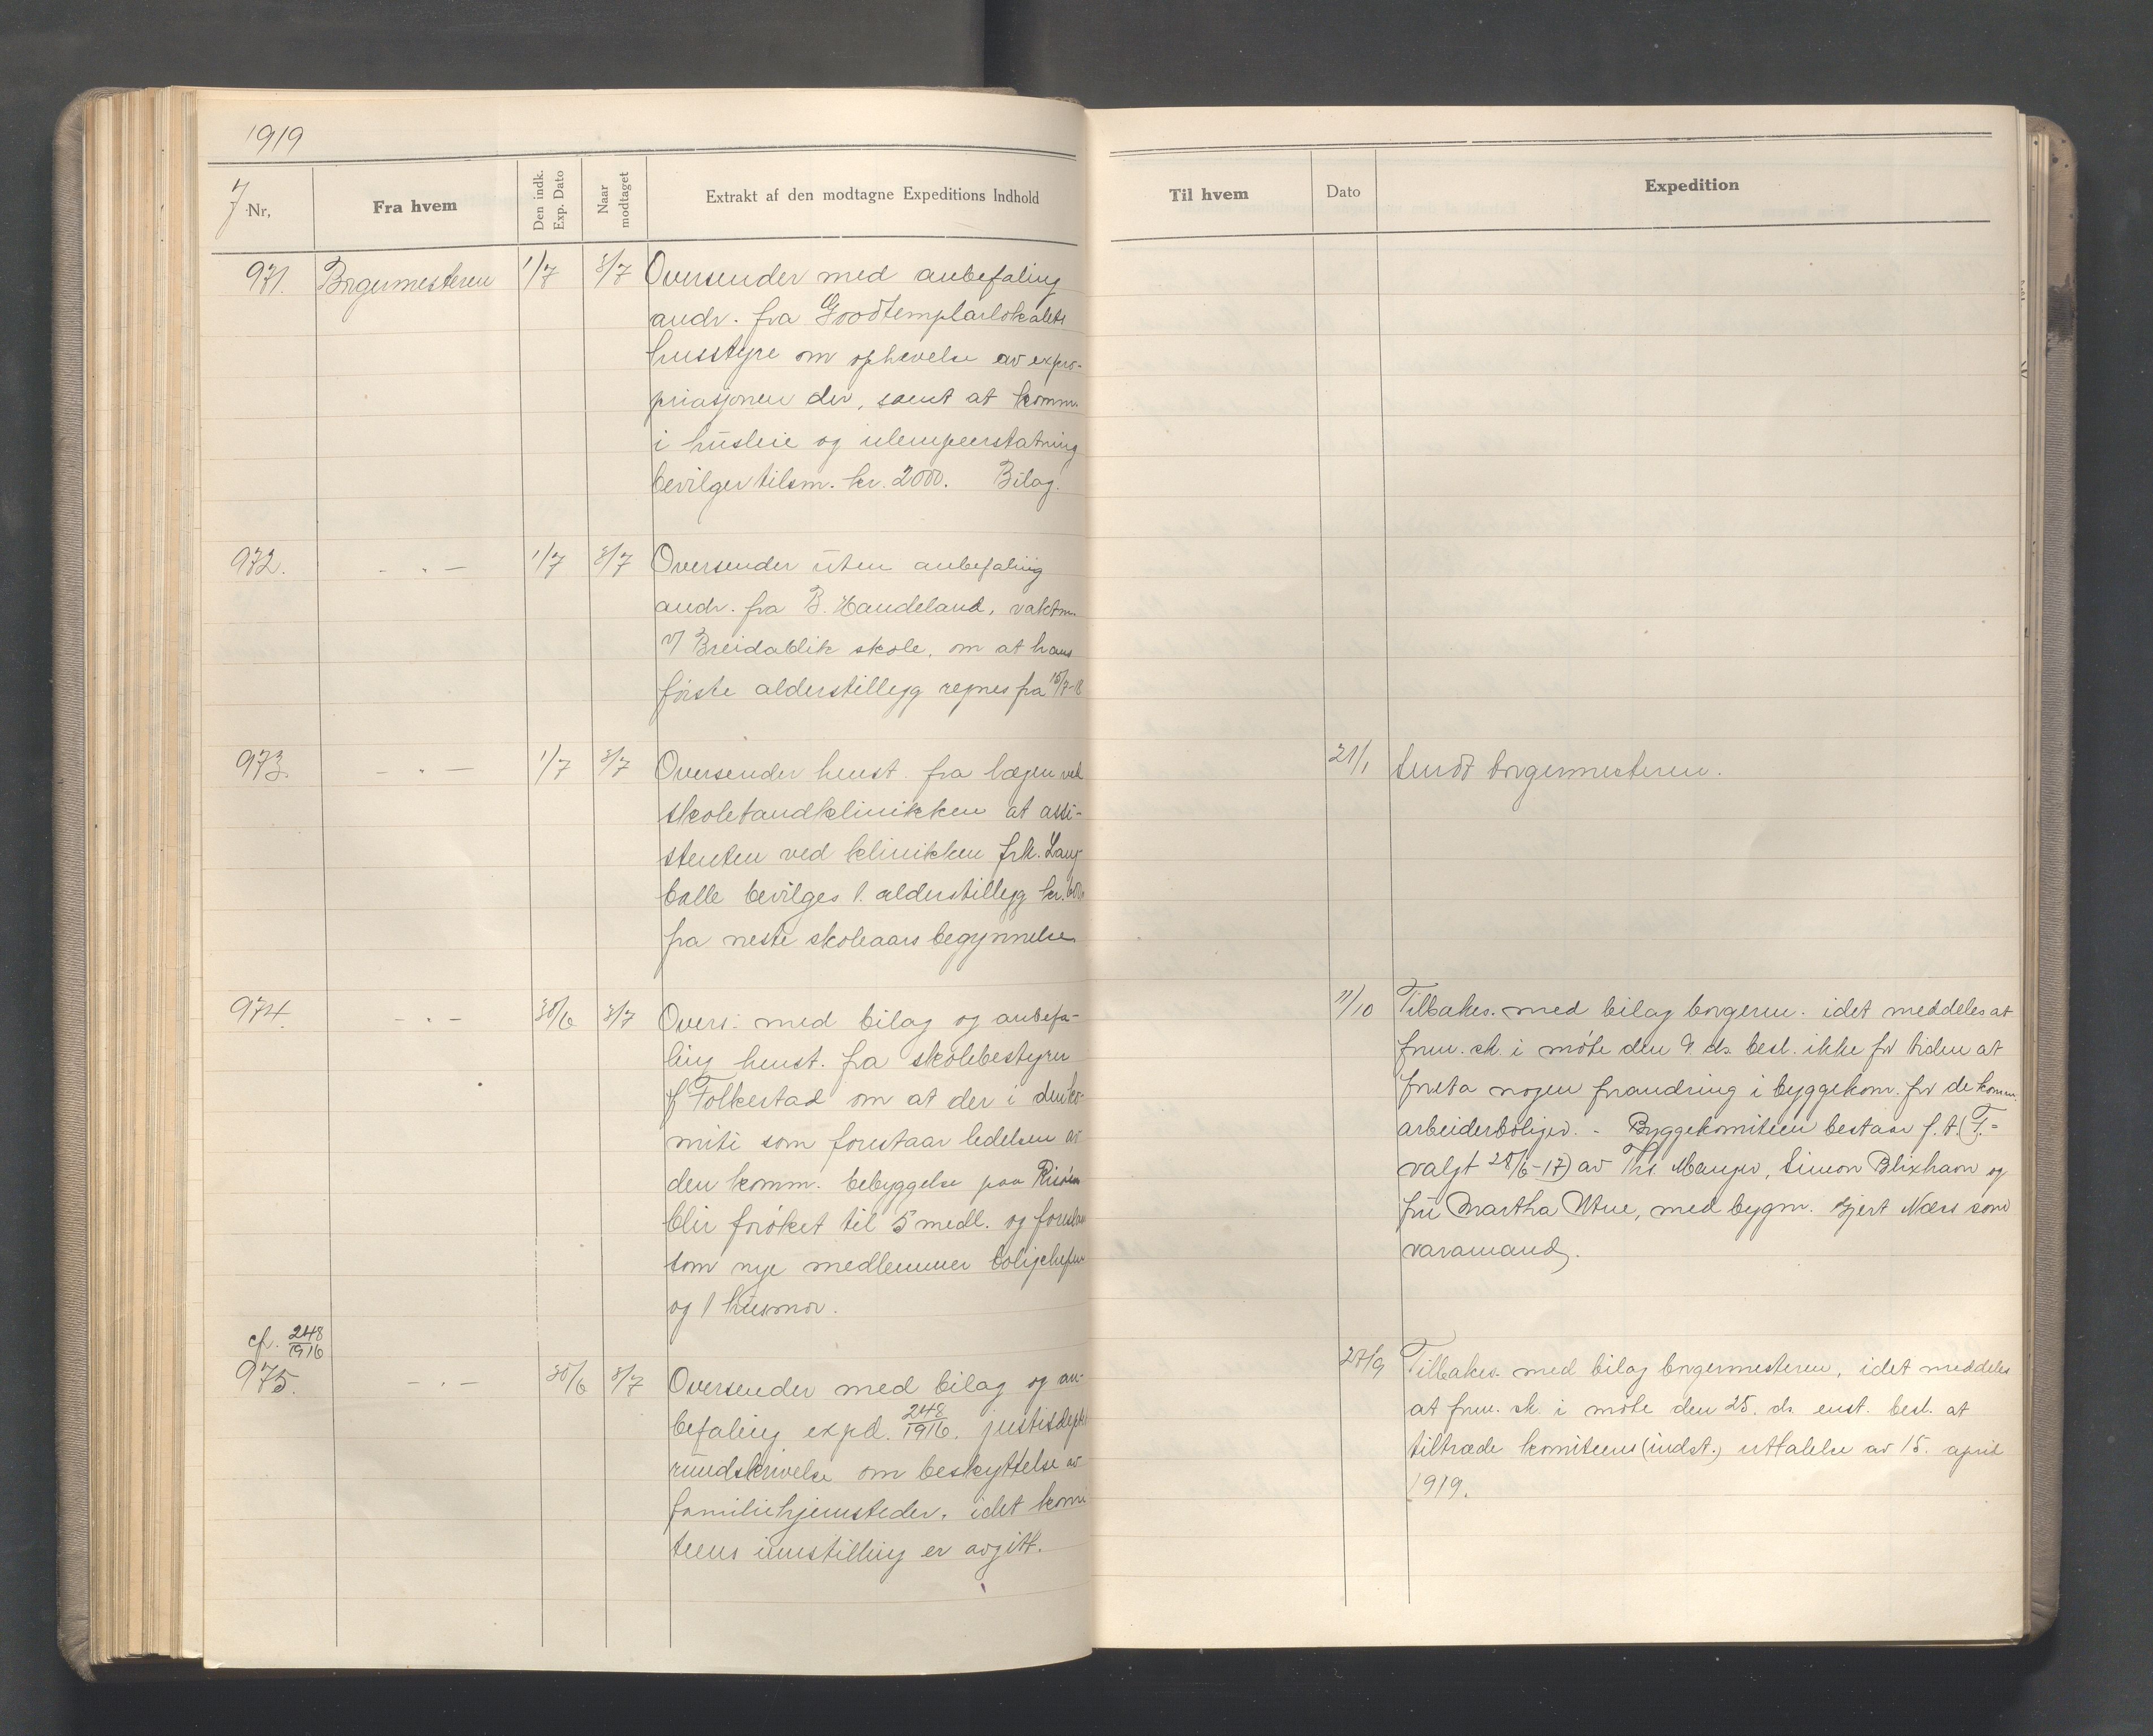 1919
J. Nr.
Fra hvem
Den indk. Exp. Dato
Naar modtaget
Extrakt af den modtagne Expeditions Indhold
Til hvem
Dato
Expedition
971. Borgermesteren 1/7 8/7 Oversender med anbefaling
andr. fra Goodtemplarlokalets
husstyre om ophevelse av expro-
priasjonen der, samt at komm.
i husleie og ulempeerstatning
bevilger tilsm. kr. 2000. Bilag.
972. - " - 1/7 8/7 Oversender uten anbefaling
andr. fra B. Handeland, vaktm.
v/ Breidablik skole, om at hans
første alderstillegg regnes fra 15/7-18
973. - " - 1/7 8/7 Oversender henst. fra lægen ved
skoletandklinikken at assi-
stenten ved klinikken frk. Lang-
balle bevilges 1. alderstillegg kr.
fra neste skoleaars begynnelse.
21/1 Sendt borgermesteren.
974. - " - 30/6 8/7 Overs. med bilag og anbefa-
ling henst. fra skolebestyrer
Folkestad om at der i den ko-
mite som forestaar ledelsen av
den komm. bebyggelse paa Risøen
blir forøket til 5 medl. og foreslaar
som nye medlemmer boligchefen
og 1 husmor.
11/10 Tilbakes. med bilag borgerm. idet meddeles at
form.sk. i møte den 9 ds. besl. ikke for tiden at
foreta nogen forandring i byggekom. for de komm.
arbeiderboliger. - Byggekomiteen bestaar f.t. (F.=
valgt 28/6-17) av Ths. Mauger, Simon Blixhavn og
fru Martha Utne, med bygm. Gjert Næss som
varamand.
cf. 248/1916
975. - " - 30/6 8/7 Oversender med bilag og an-
befaling expd. 248/1916. justisdept.
rundskrivelse om beskyttelse av
familiehjemsteder, idet komi-
teens innstilling er avgitt.
27/9 Tilbakes. med bilag borgermesteren, idet meddeles
at form.sk. i møte den 25. ds. enst. besl. at
tiltræde komiteens (indst.) uttalelse av 15. april
1919.